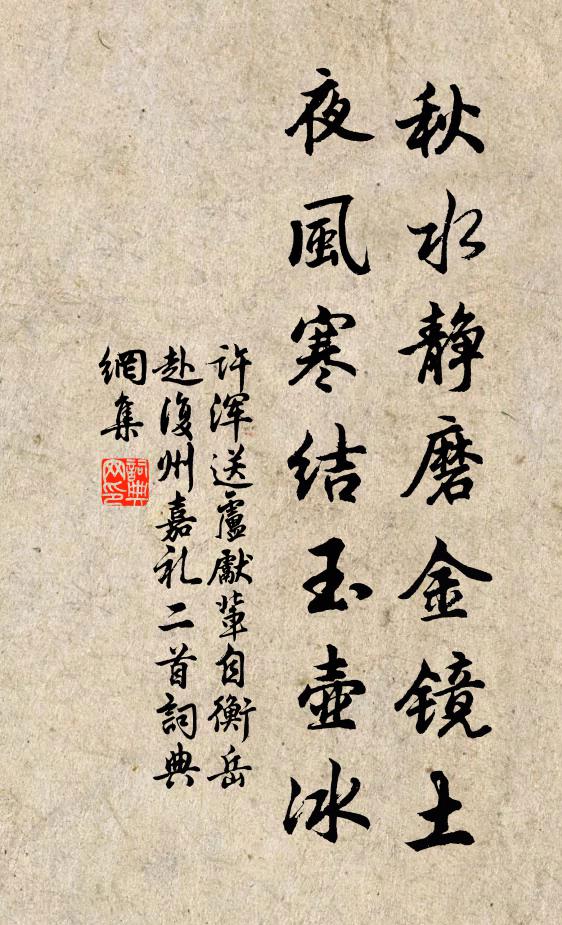 秋水静磨金镜土
夜風寒结玉壺冰
许浑送盧獻輩自衡岳
赴復州嘉礼二首詞典
網集
詞典
网印